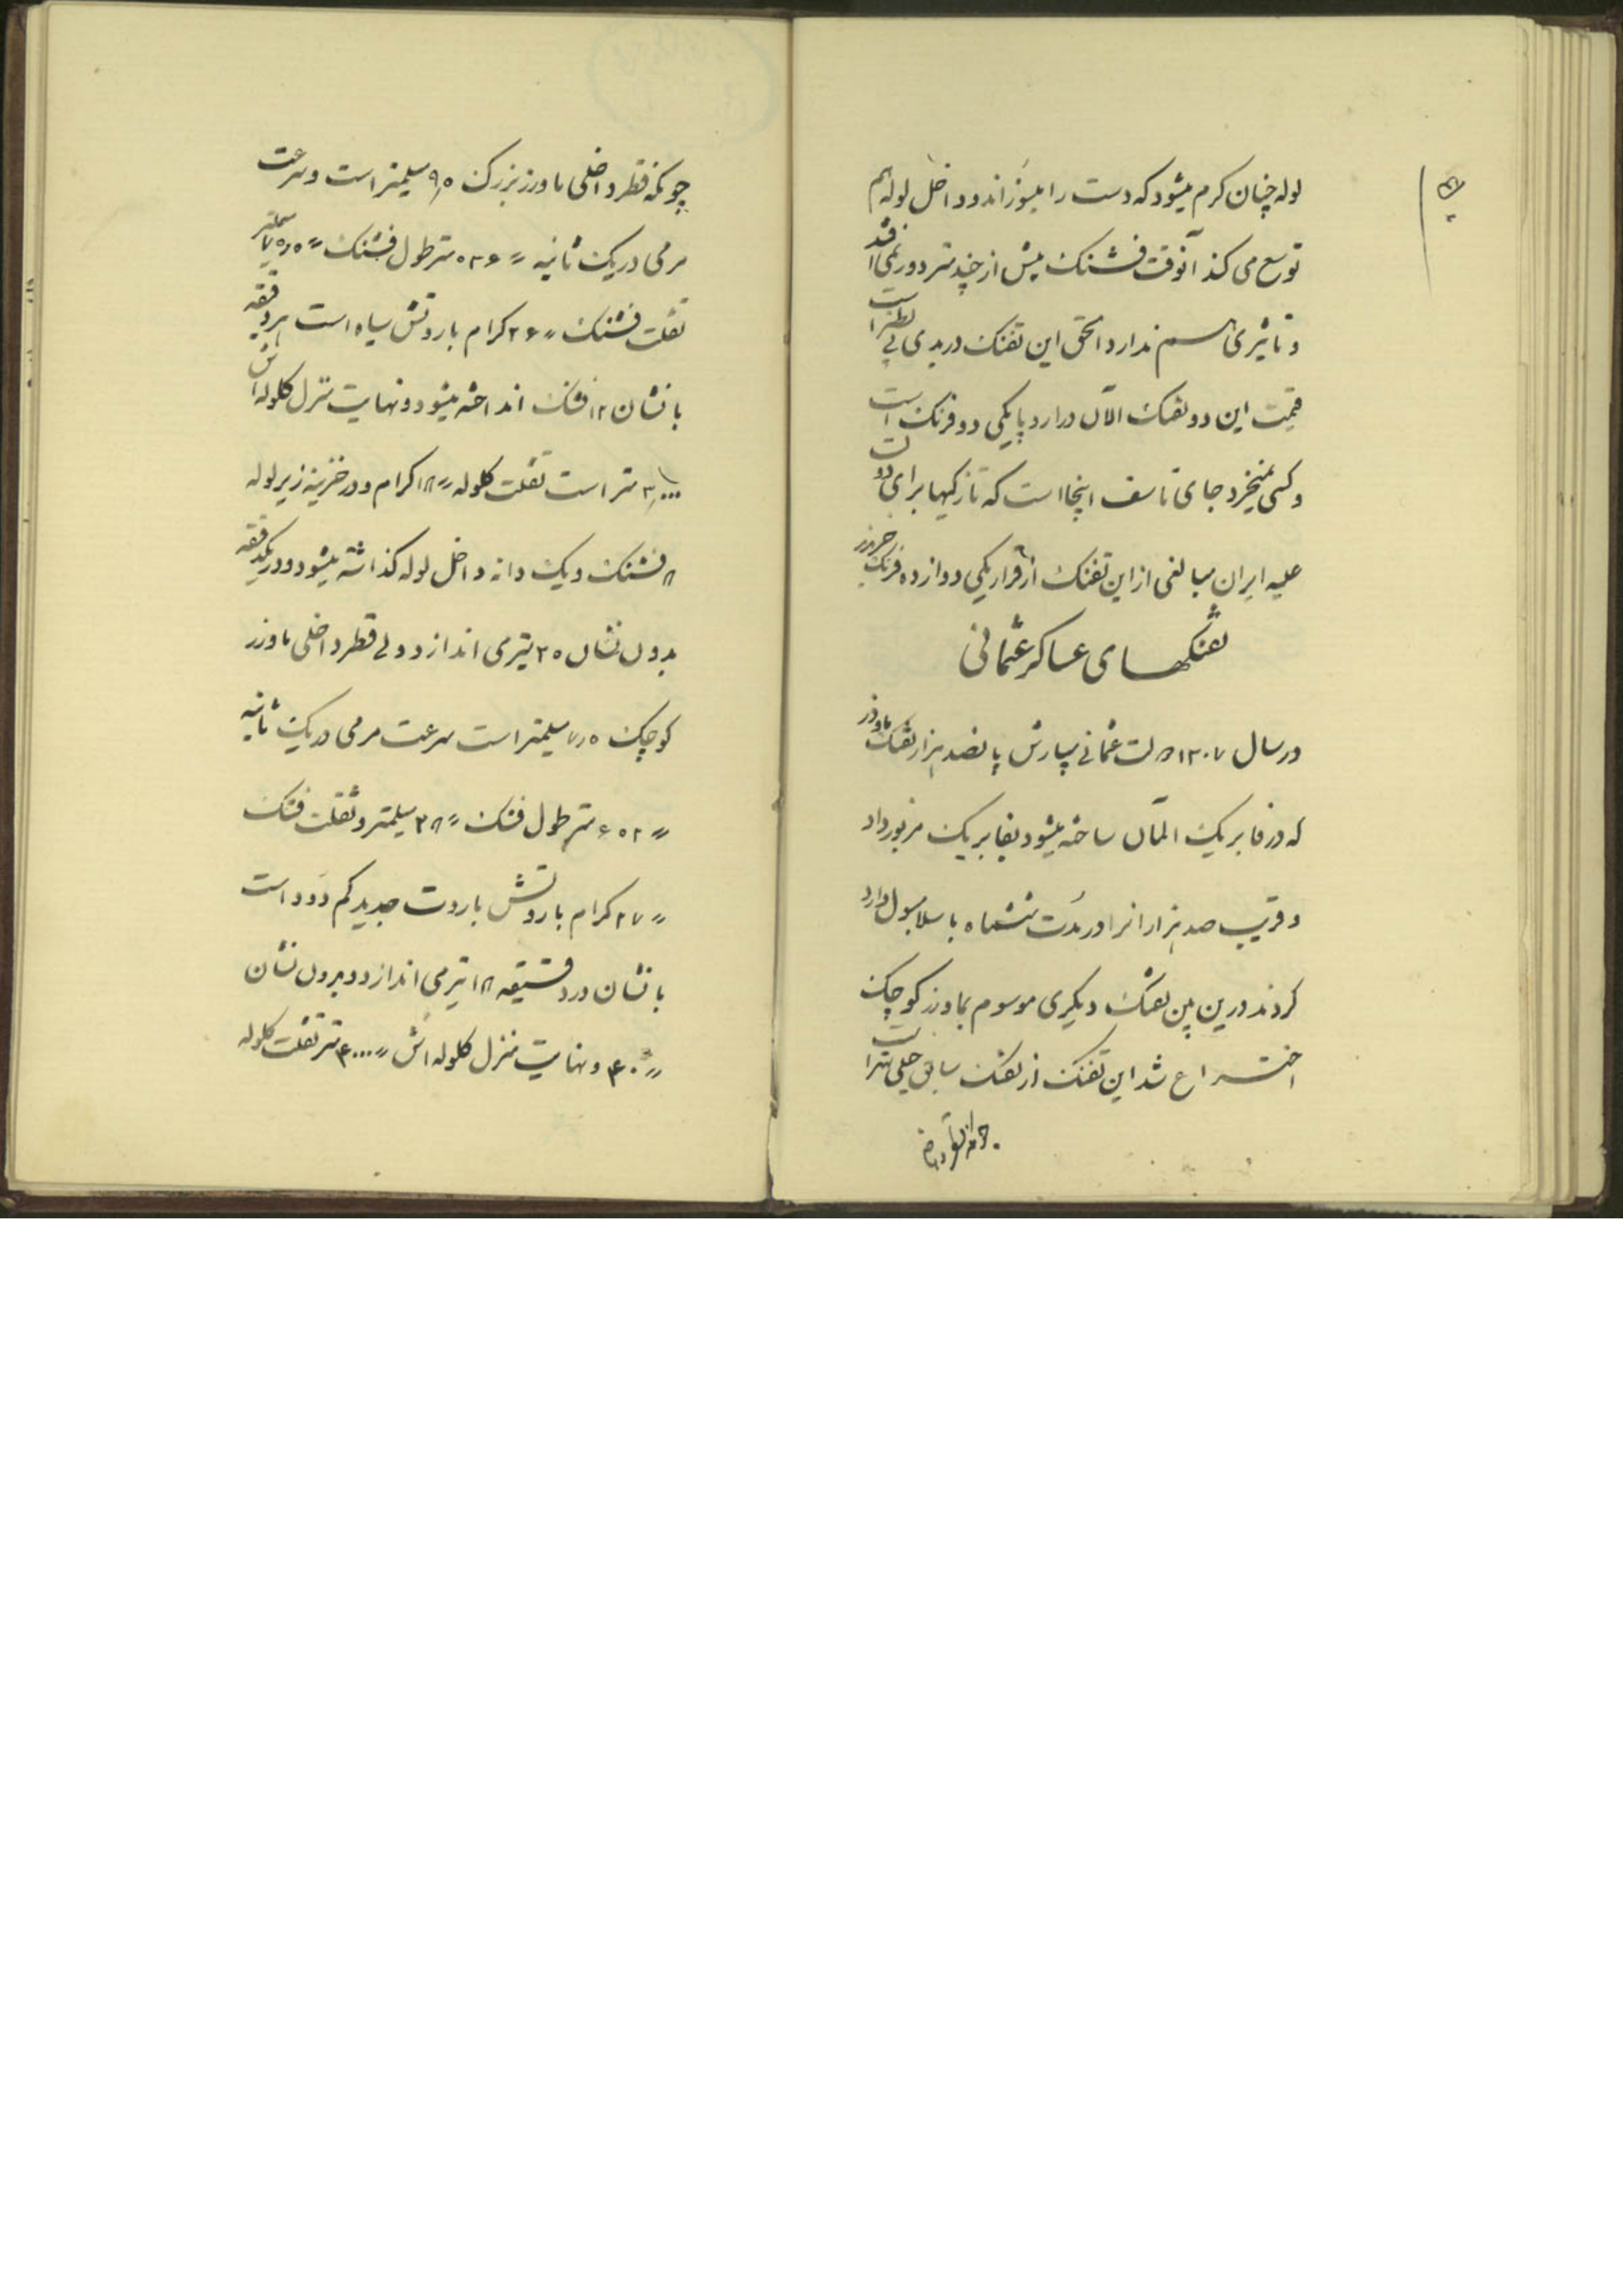 لوله چنان کرم میشود که دست را میسوزاند و داخل لوله هم
توسع می کند آنوقت فشنک بیش از چند متر دور نمی افتد
و تاثیری هم ندارد الحق این تفنک در بدی بی نظیر است
قیمت این دو تفنک الآن در ارد پا یکی دو فرنک است
و کسی نمیخرد جای تاسف اینجا است که تازکیها برای دولت
علیه ایران مبالغی از این تفنک از قرار یکی دوازده فرنک خریدند
تفنکهای عساکر عثمانی
در سال ۱۳۰۷ دولت عثمانی سپارش پانصد هزار تفنک ماوزر
که در فابریک المان ساخته میشود بفابریک مزبور داد
و قریب صد هزار انرا در مدت ششماه باسلامبول وارد
کردند درین بین تفنک دیکری موسوم بماوزر کوچک
اختراع شد این تفنک از تفنک سابق خیلی بهتر است
چونکه قطر داخلی ماوزر بزرک ۹٫۵ میلیمتر است و سرعت
مرمی در یک ثانیه ۵۳۶ متر طول فشنک ۷۵٫۵ میلیمتر
ثقلت فشنک ۲۶ کرام باروتش سیاه است هر دقیقه
با نشان ۱۲ فشنک انداخته میشود و نهایت منزل کلوله اش
۳٫۰۰۰ متر است ثقلت کلوله ۱۸ کرام و در خزینه زیر لوله
۸ فشنک و یک دانه داخل لوله کذاشته میشود و در یکدقیقه
بدون نشان ۲۵ تیر می اندازد ولی قطر داخلی ماوزر
کوچک ۷٫۵ میلیمتر است سرعت مرمی در یک ثانیه
۶۵۲ متر طول فشنک ۳۸ میلیمتر و ثقلت فشنک
۲۷ کرام باروتش باروت جدید کم دود است
با نشان در دقیقه ۱۸ تیر می اندازد و بدون نشان
۴۰ و نهایت منزل کلوله اش ۴۰۰۰ متر ثقلت کلوله